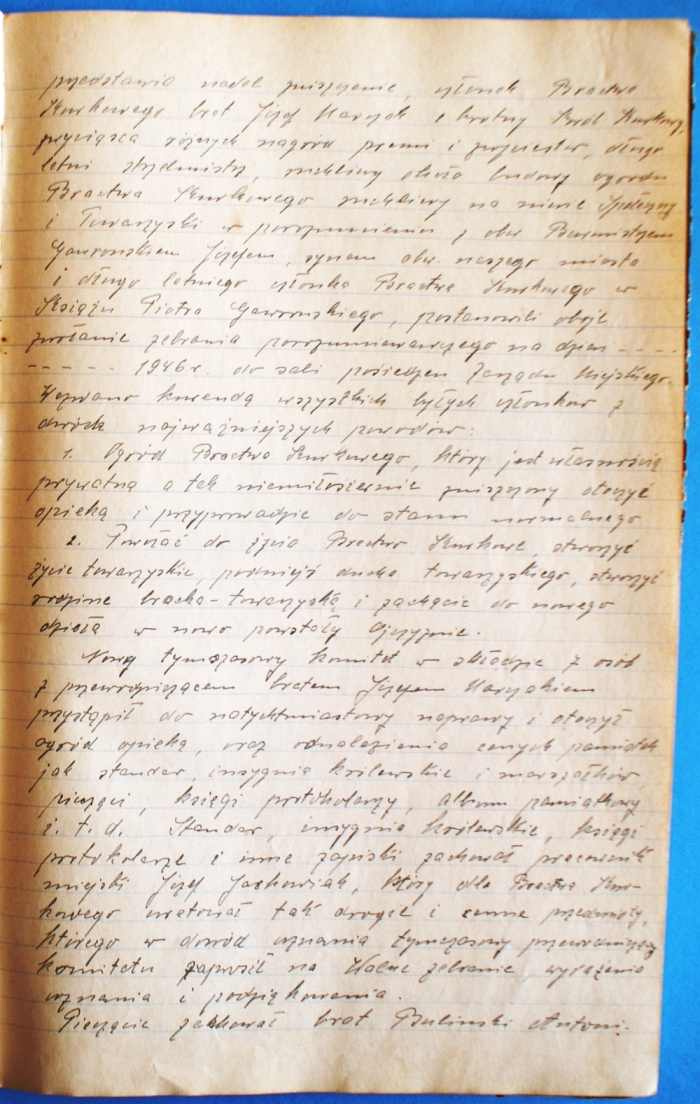 przedstawia nadal zniszczenie, członek Bractwa
Kurkowego brat Józef Marczak krotny Król Kurkowy,
zwycięzca różnych nagród premi i zwycięstw, długo
letni strzelmistrz, ruchliwy około budowy ogrodu
Bractwa Kurkowego ruchliwy na niwie Społecznej
i Towarzyski w porozumieniu z obw Burmistrzem
Gawrońskiem Józefem, synem obw. naszego miasta
i długo letniego członka Bractwa Kurkowego w
Książu Piotra Gawrońskiego, postanowili oboje
zwołanie zebrania porozumiewawczego na dzień - - - -
- - - - - 1946 r. do sali posiedzeń Zarządu Miejskiego.
Wezwano kurendą wszystkich byłych członków z
dwóch najważniejszych powodów:
1. Ogród Bractwa Kurkowego, który jest własnością
prywatną a tak niemiłosiernie zniszczony otoczyć
opieką i przyprowadzić do stanu normalnego
2. Powołać do życia Bractwo Kurkowe, stworzyć
życie towarzyskie, podnieść ducha towarzyskiego, stworzyć
rodzinę bracko-towarzyską i zachęcić do nowego
dzieła w nowo powstały Ojczyznie.
Nowy tymczasowy komitet w składzie 7 osób
z przewodniczącem bratem Józefem Marczakiem
przystąpił do natychmiastowy naprawy i otoczył
ogród opieką, oraz odnalezienia cennych pamiątek
jak standar, insygnia królewskie i marszałków,
pieczęci, księgi protokolarzy, album pamiątkowy
i. t. d. Standar, insygnia królewskie, księgi
protokolarze i inne zapiski zachował pracownik
miejski Józef Jachowiak, który dla Bractwa Kur-
kowego uratował tak drogie i cenne przedmioty,
którego w dowód uznania tymczasowy przewodniczący
komitetu zaprosił na Walne zebranie wyrażenia
uznania i podziękowania.
Pieczęcie zachował brat Buliński Antoni.